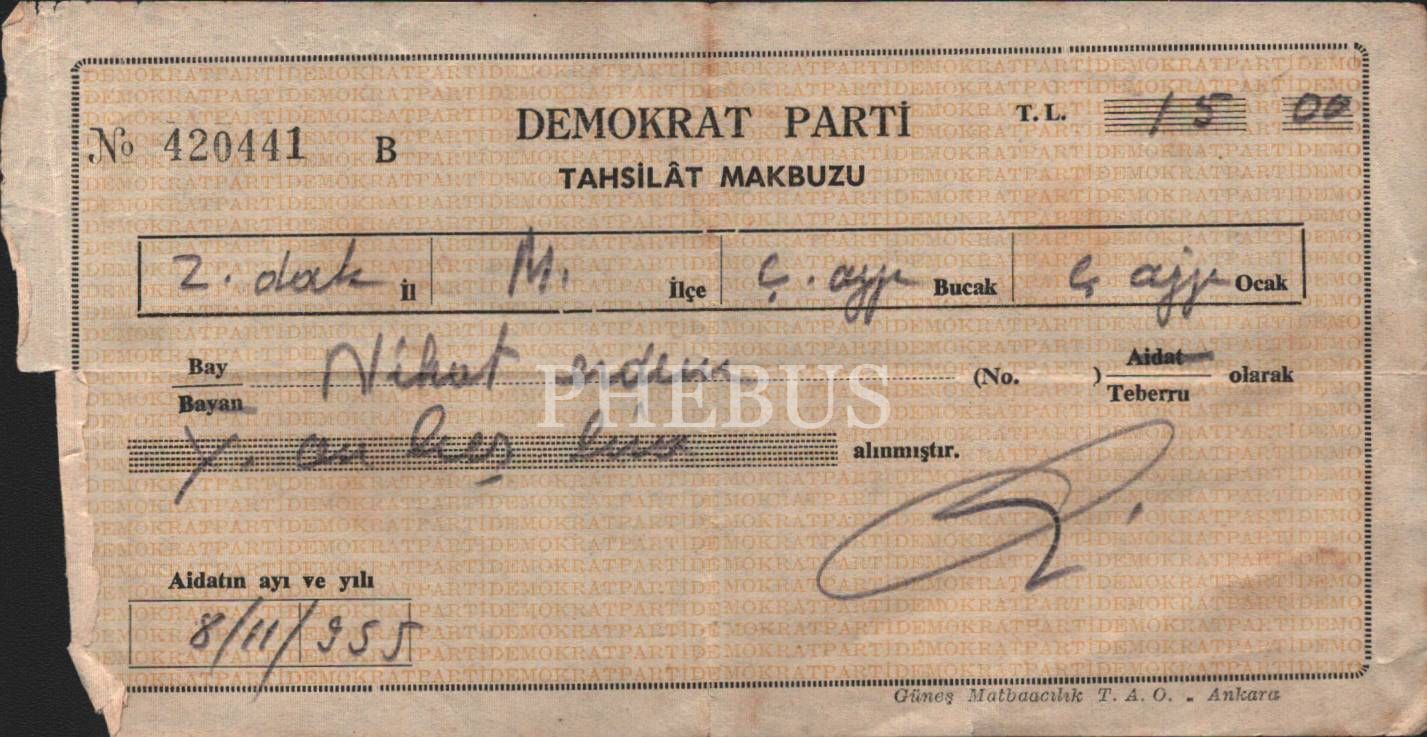 DEMOKRAT PARTİ
T.L. 15 00
No 420441 B
TAHSİLÂT MAKBUZU
Z. dak İl M. İlçe Ç. ayı Bucak Ç ayı Ocak
Bay Nihat (No. ) Aidat olarak
Bayan Teberru
Y. on beş lira alınmıştır.
PHEBUS
Aidatın ayı ve yılı
8/11/955
Güneş Matbaacılık T. A. O. - Ankara